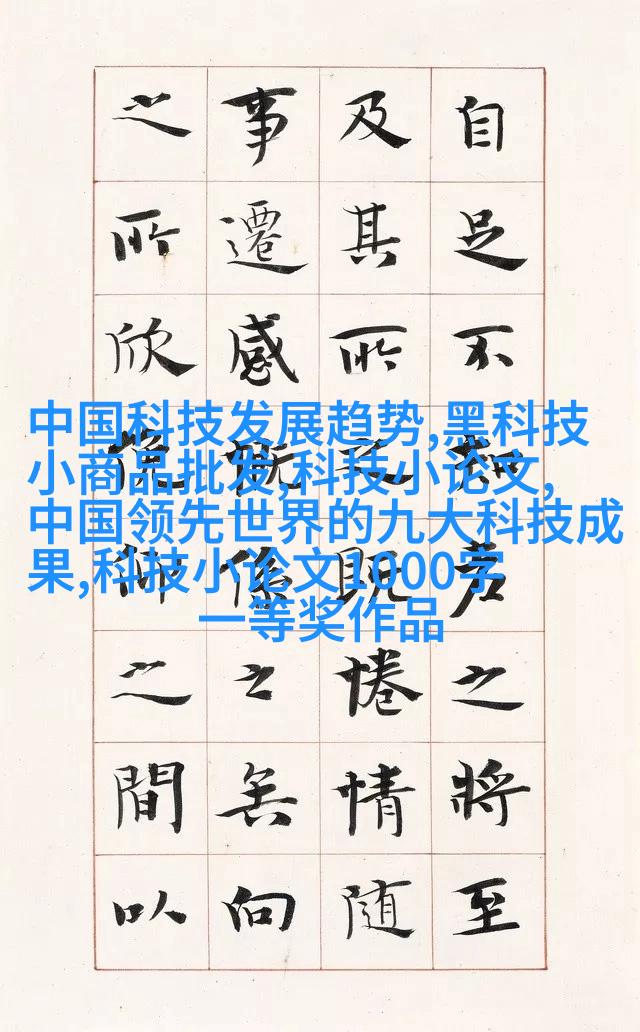 自足不知老之將至
及其所之既惓情隨
事遷感慨係之矣向
之所欣俛仰之間以
中国科技发展趋势,黑科技
小商品批发,科技小论文,
中国领先世界的九大科技成
果,科技小论文1000字
一等奖作品